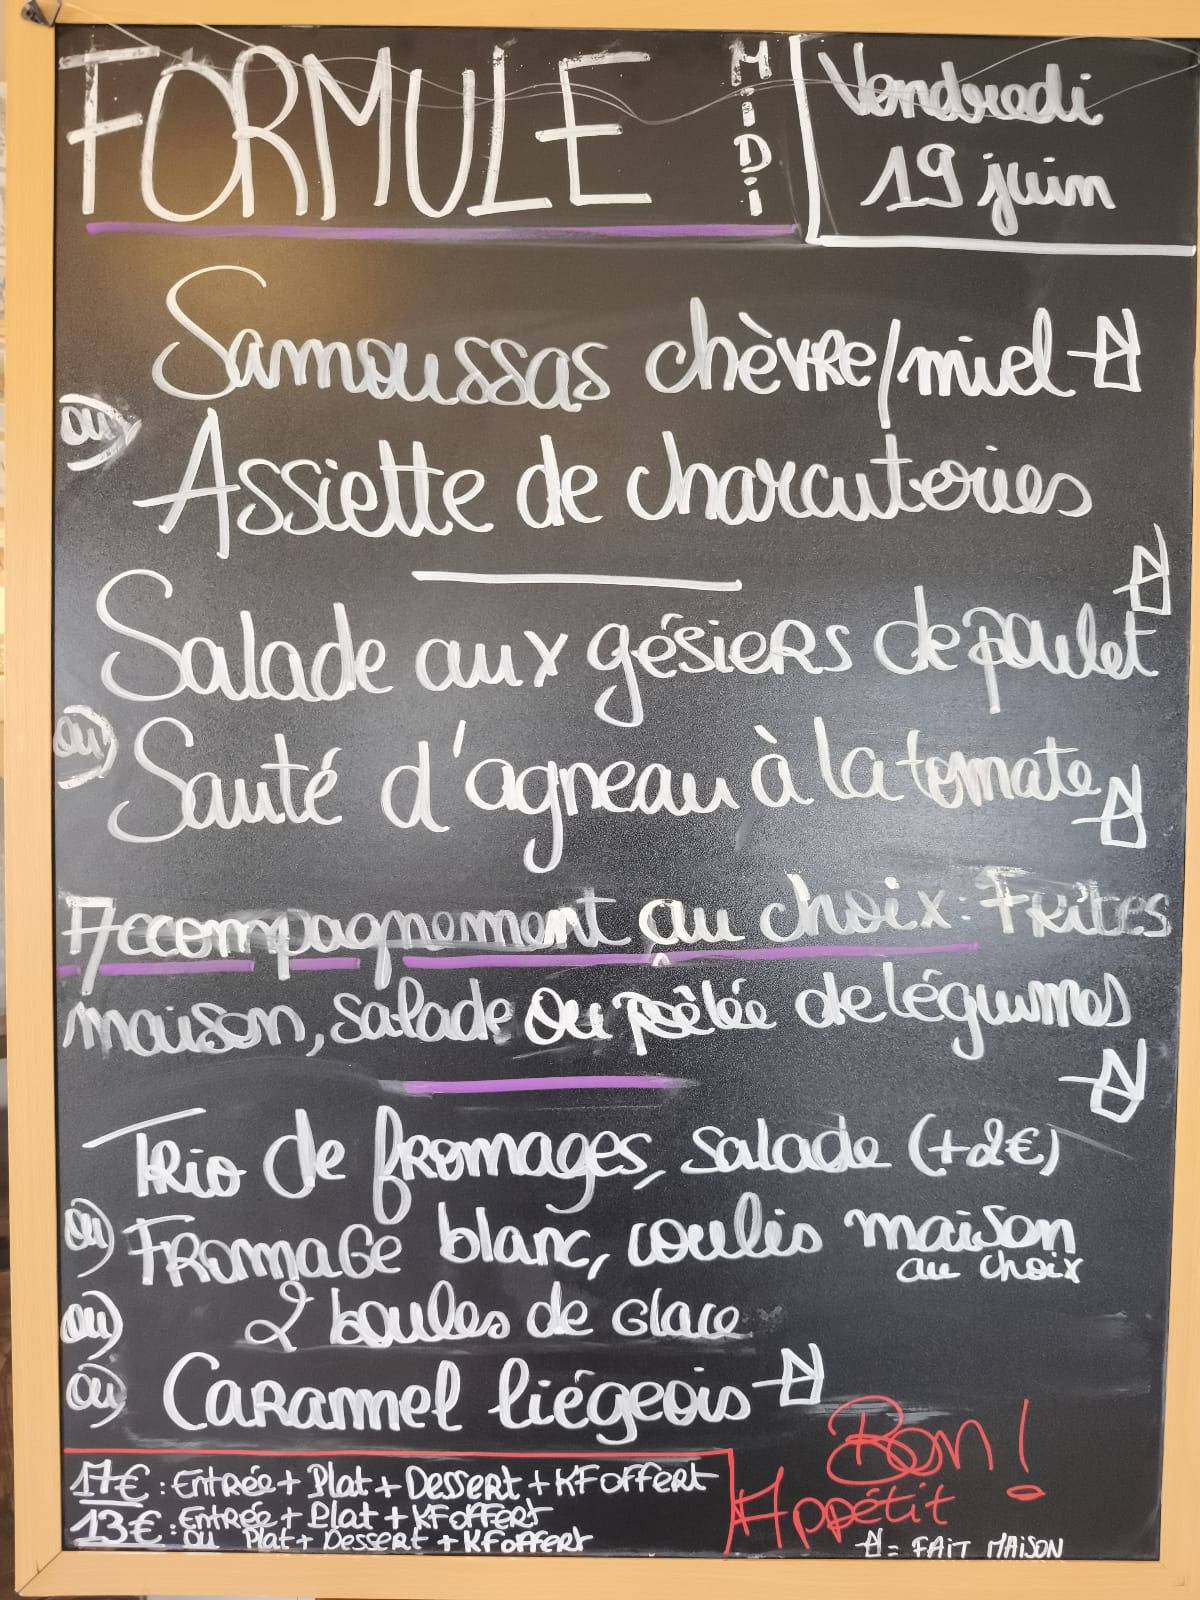 FORMULE MiDi
Vendredi
19 juin
Samoussas chèvre/miel
ou
Assiette de charcuteries
Salade aux gésiers de poulet
ou
Sauté d'agneau à la tomate
Accompagnement au choix : Frites
maison, salade ou poêlée de légumes
Trio de fromages, salade (+2€)
ou Fromage blanc, coulis maison
au choix
ou 2 boules de glace
ou Caramel liégeois
17€ : Entrée + Plat + Dessert + KF offert
13€ : Entrée + Plat + KF offert
ou Plat + Dessert + KF offert
Bon !
Appétit
= FAIT MAISON